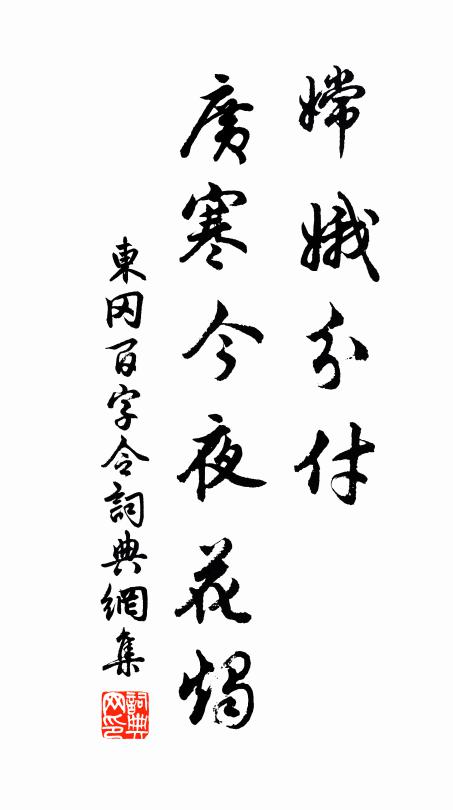 嫦娥分付
廣寒今夜花燭
東冈百字令詞典網集
詞典網印